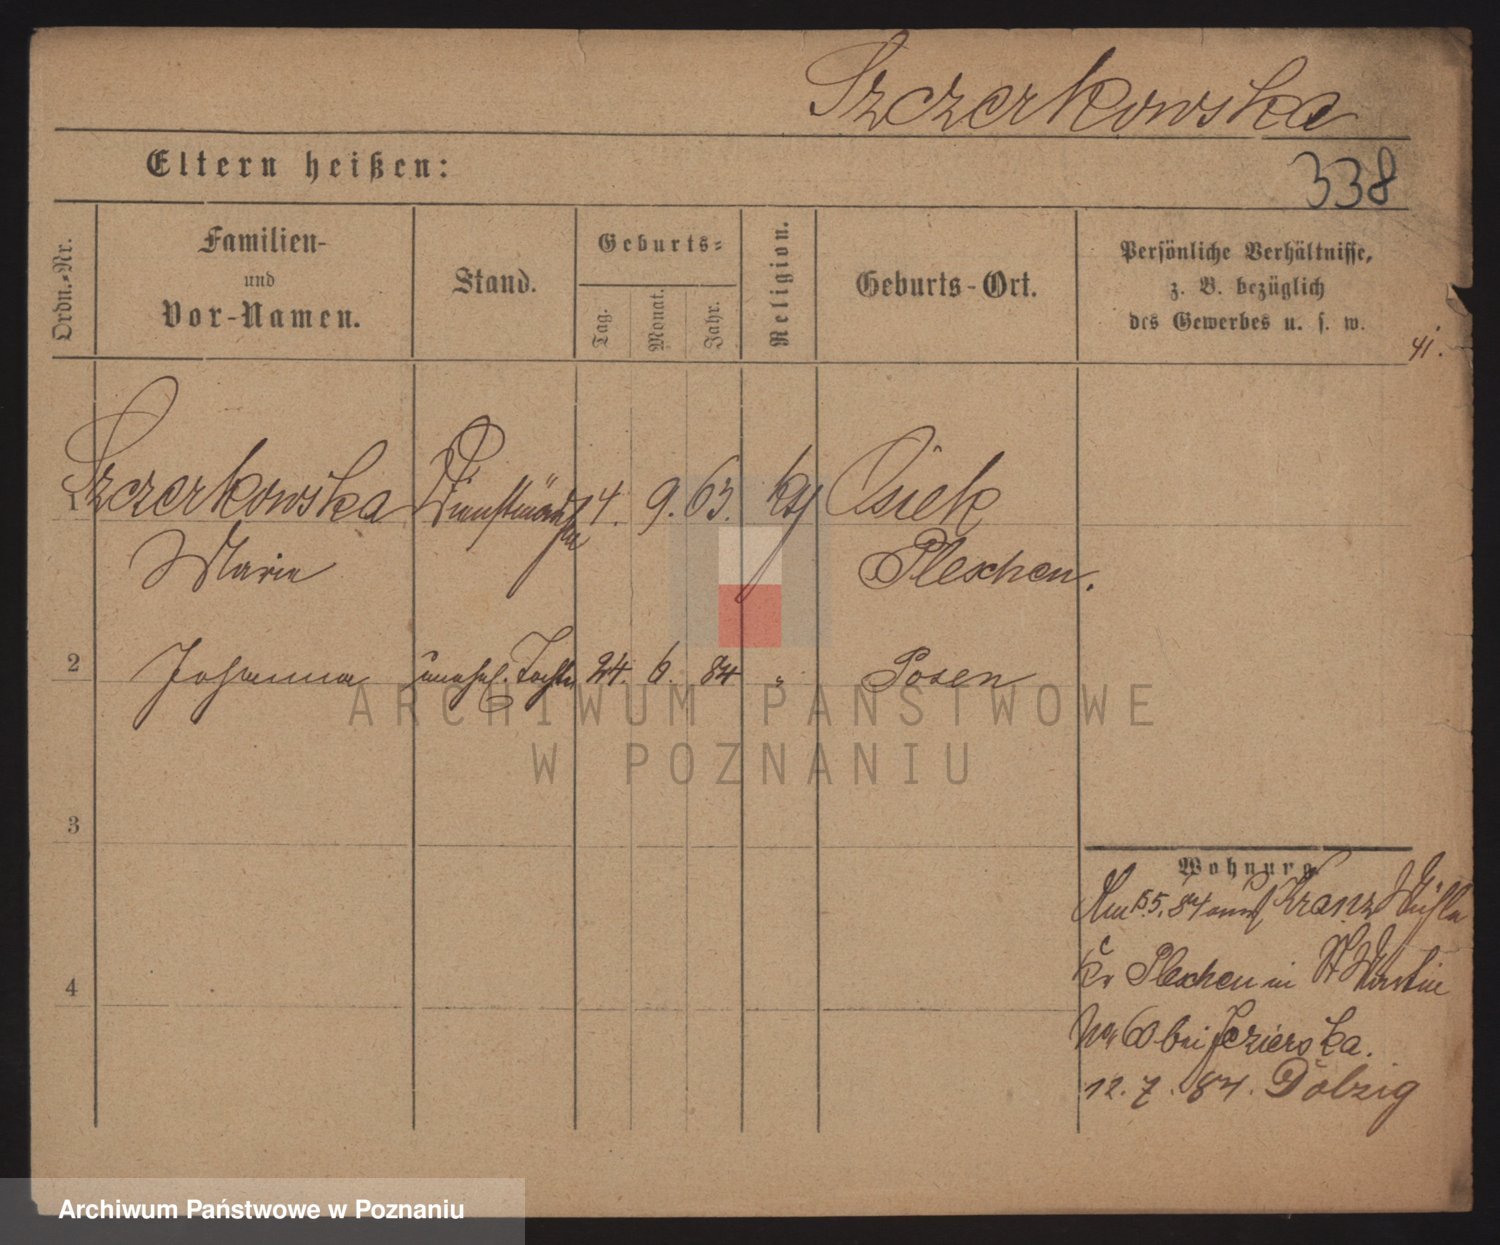 Szczerkowska
Eltern heißen:
338
Ordn.-Nr.
Familien-
und
Vor-Namen.
Stand.
Geburts-
Tag.
Monat.
Jahr.
Religion.
Geburts-Ort.
Persönliche Verhältnisse,
z. B. bezüglich
des Gewerbes u. s. w.
41.
1 Szczerkowska Dienstmädchen 4. 9. 63. kth Osiek
Marie Pleschen.
2 Johanna unehel. Tochter 24. 6. 84 " Posen
ARCHIWUM PAŃSTWOWE
W POZNANIU
3
Wohnung
Am 5.84 Kranz Mühle
Kr Pleschen in St Martin
4
Nr 60 bei Jezierska.
12. 7. 84. Dolzig
Archiwum Państwowe w Poznaniu